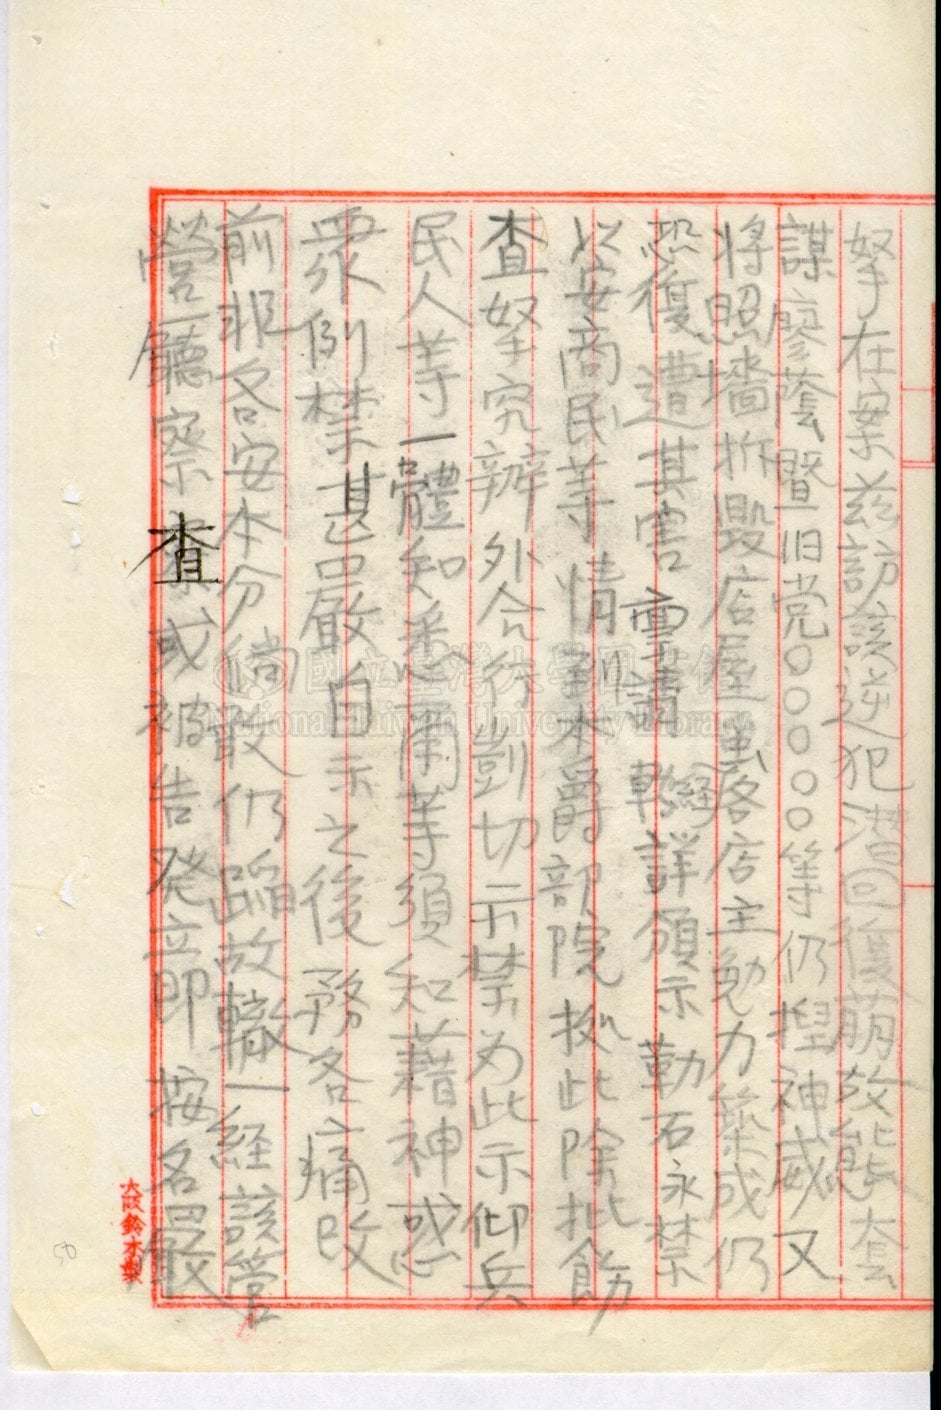 孥在案茲訪該逆犯潛回復萌故態套
謀廖蔭暨旧党〇〇〇〇〇等仍揑神威又
將照墻拆毀店屋虽落店主勉力築成仍
恐復遭其害稟請轉經詳領示勒石永禁
以安商民等情到本爵部院拠此除批飭
查孥究辦外合行剴切示禁为此示仰兵
民人等一體知悉軍等須知藉神惑
眾例禁甚嚴自示之後務各痛改
前非各安本分倘敢仍蹈故轍一経該管
營廳察查或被告発立即按名嚴
大阪鈴木製
50
國立臺灣大學圖書館
National Taiwan University Library